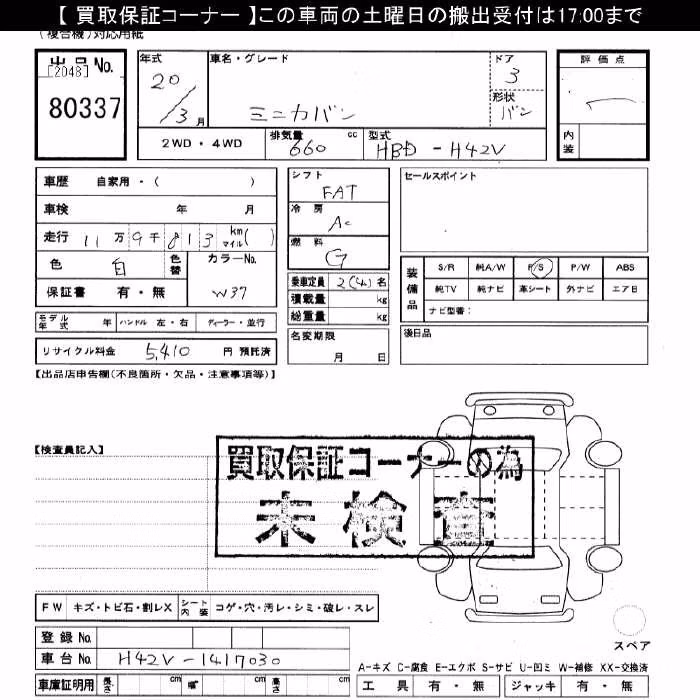 【 買取保証コーナー 】この車両の土曜日の搬出受付は17:00まで
(複合機)対応用紙
出品 No.
[2048]
80337
年式
20/3月
車名・グレード
ミニカバン
ドア
3
形状
バン
2WD・4WD
排気量
660 cc
型式
HBD-H42V
評価点
内装
車歴 自家用・( )
車検 年 月
走行 11万9千813 km マイル( )
色 白 色替
カラーNo.
W37
保証書 有・無
モデル年式 年 ハンドル 左・右 ディーラー・並行
リサイクル料金 5,410 円 預託済
シフト
FAT
冷房
AC
燃料
G
乗車定員 2(4)名
積載量 kg
総重量 kg
名変期限
月 日
セールスポイント
装備品
S/R 純A/W P/S P/W ABS
純TV 純ナビ 革シート 外ナビ エアB
ナビ型番:
後日品
【出品店申告欄(不良箇所・欠品・注意事項等)】
【検査員記入】
買取保証コーナーの為
未検査
FW キズ・トビ石・割レX シート内装 コゲ・穴・汚レ・シミ・破レ・スレ
登録 No.
車台 No. H42V-1417030
車庫証明用 長さ cm 幅 cm 高さ cm
スペア
A-キズ C-腐食 E-エクボ S-サビ U-凹ミ W-補修 XX-交換済
工具 有・無 ジャッキ 有・無